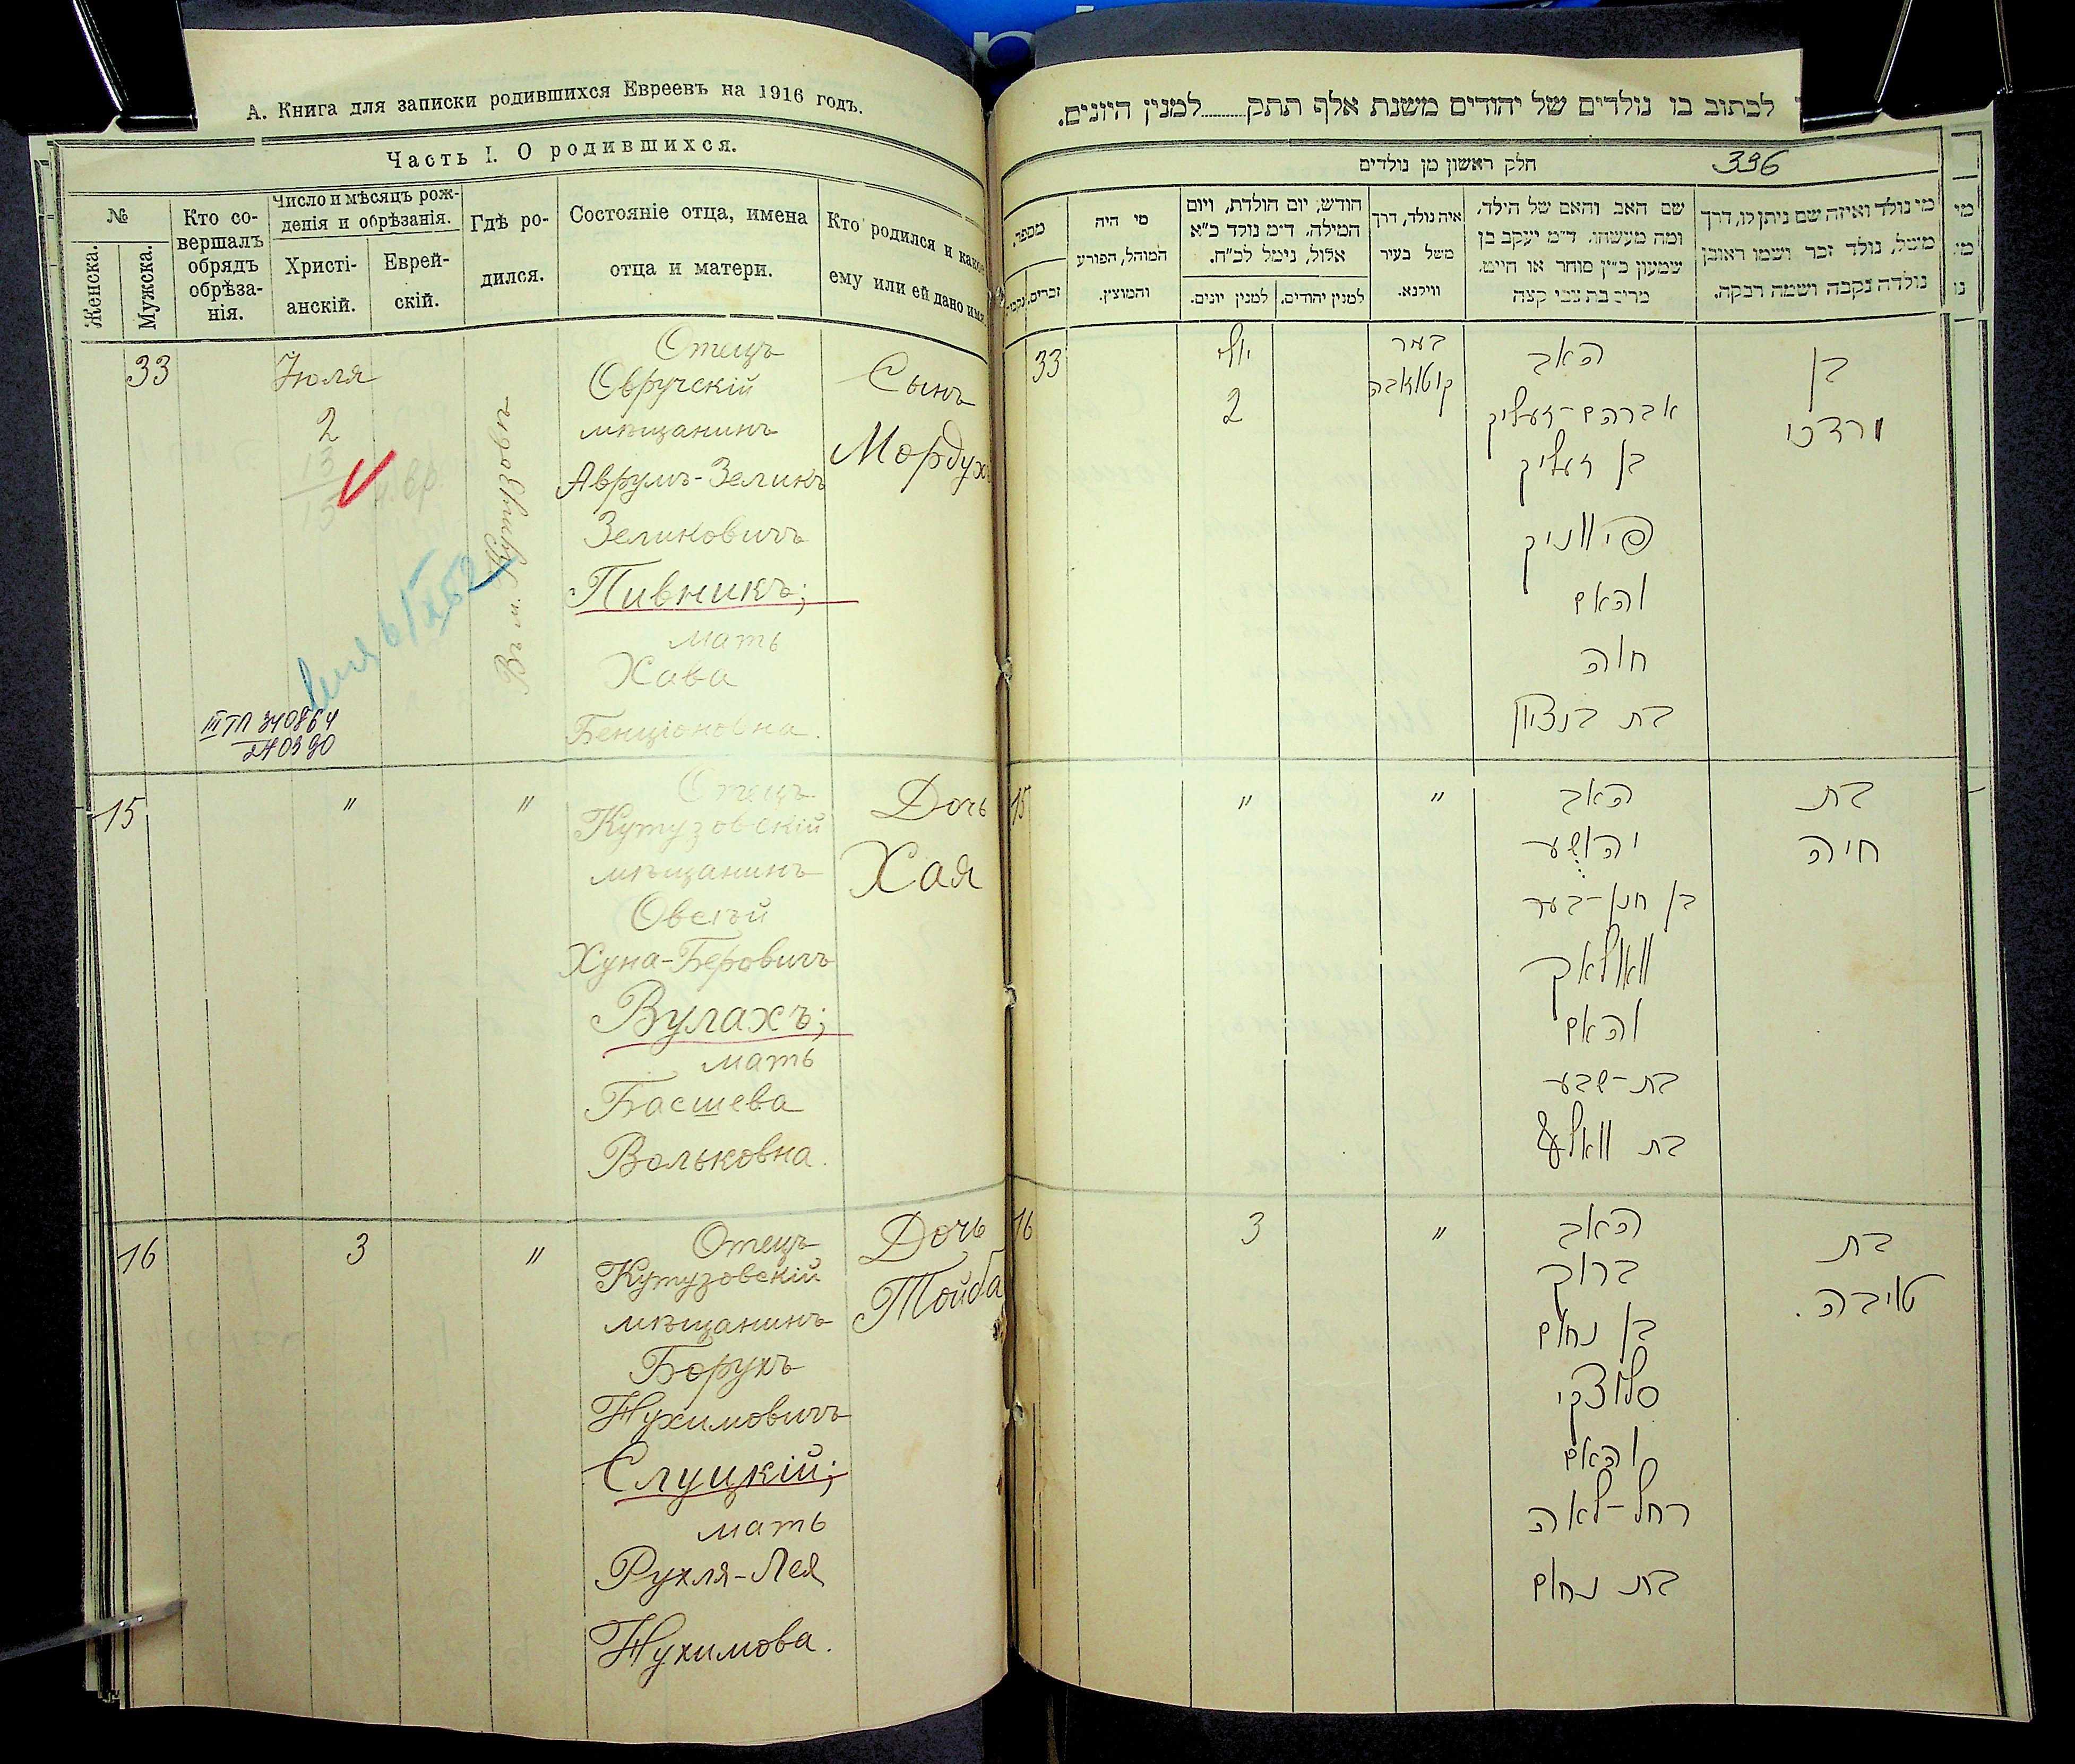 А. Книга для записки родившихся Евреевъ на 1916 годъ.
Часть I. О родившихся.
№
Женска.
Мужска.
Кто со-
вершалъ
обрядъ
обрѣза-
нія.
Число и мѣсяцъ рож-
денія и обрѣзанія.
Христі-
анскій.
Еврей-
скій.
Гдѣ ро-
дился.
Состояніе отца, имена
отца и матери.
Кто родился и какое
ему или ей дано имя.
33
Іюля
2
13
15
Отецъ
Овручскій
мѣщанинъ
Аврумъ-Зеликъ
Зеликовичъ
Пивникъ;
мать
Хава
Бенціоновна.
Сынъ
Мордухъ
III ТП 340864
240390
15
"
"
Отецъ
Кутузовскій
мѣщанинъ
Овсѣй
Хуна-Беровичъ
Вулахъ;
мать
Басшева
Вольковна.
Дочь
Хая
16
3
"
Отецъ
Кутузовскій
мѣщанинъ
Борухъ
Нухимовичъ
Слуцкій;
мать
Рухля-Лея
Нухимова.
Дочь
Тойба
לכתוב בו נולדים של יהודים משנת אלף תתק..........למנין היונים.
חלק ראשון מן נולדים
336
מי נולד ואיזה שם ניתן לו, דרך
משל, נולד זכר ושמו ראובן
נולדה נקבה ושמה רבקה.
שם האב והאם של הילד,
ומה מעשהו. ד״מ יעקב בן
שמעון כ״ץ סוחר או חייט.
מרים בת צבי קצה
איה נולד, דרך
משל בעיר
ווילנא.
חודש, יום הולדת, ויום
המילה. ד״מ נולד כ״א
אלול, נימל לכ״ח.
למנין יהודים.
למנין יונים.
מי היה
המוהל, הפורע
והמוצץ.
מספר.
זכרים.
33
יולי
2
האב
אברהם-זעליק
בן זעליק
פיווניק
והאם
חוה
בת בנציון
בן
מרדכי
15
"
"
האב
יהושע
בן חנן-בער
וואולאך
והאם
בת-שבע
בת וואלף
בת
חיה
16
3
"
האב
ברוך
בן נחום
סלוצקי
והאם
רחל-לאה
בת נחום
בת
טויבה.